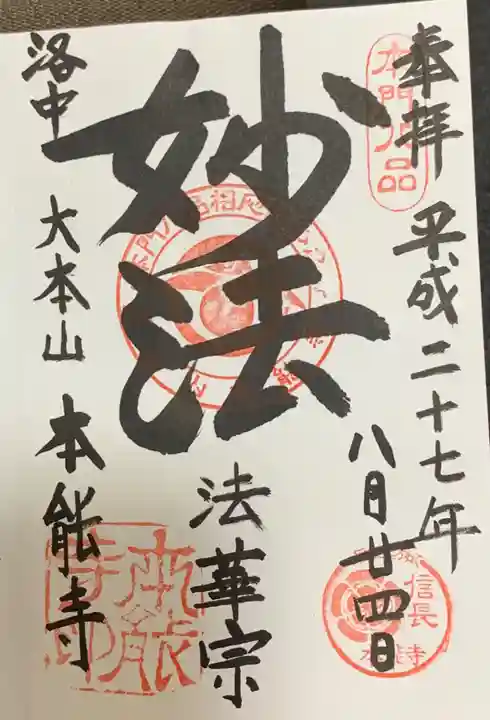 奉拝
平成二十七年
八月廿四日
妙法
法華宗
洛中 大本山 本能寺
本門八品
信長
本能寺印